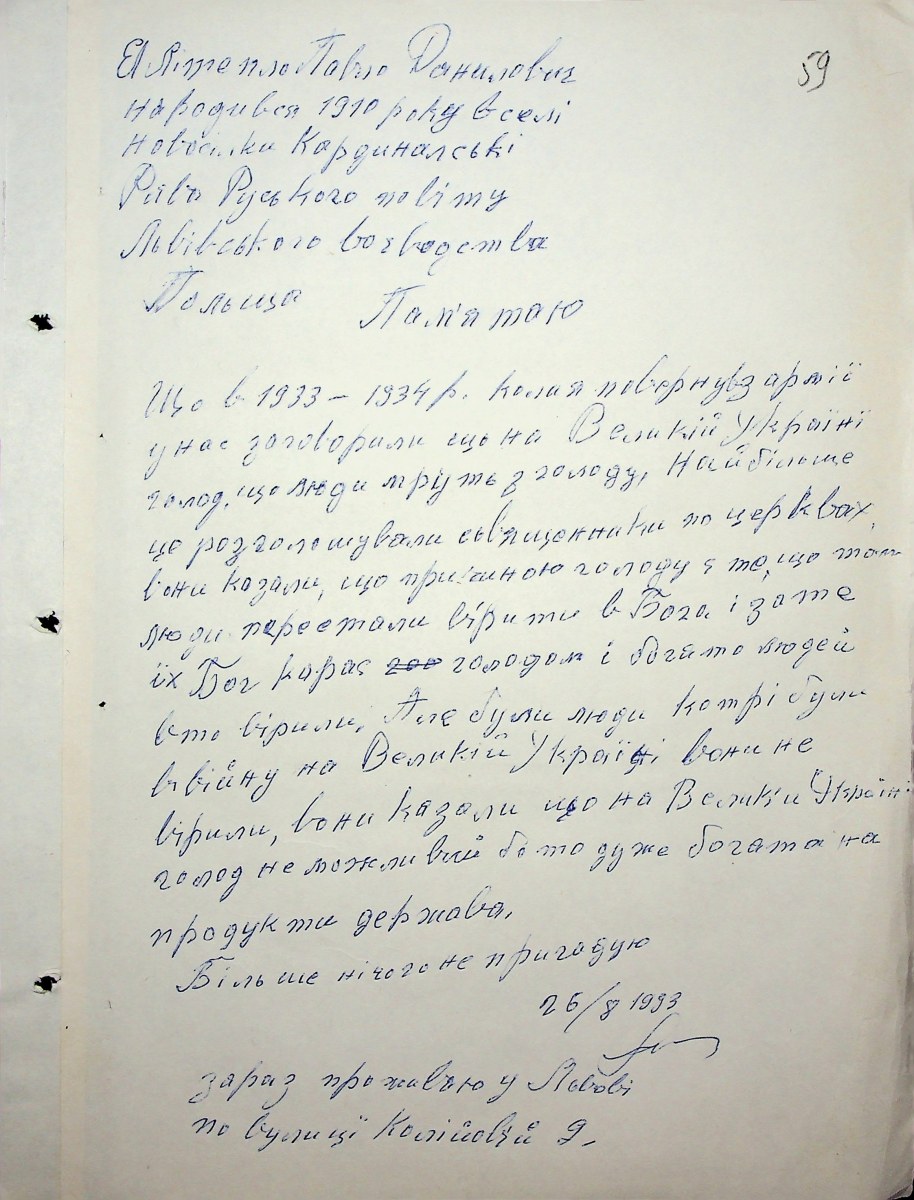 59
Я Літепло Павло Данилович
народився 1910 року в селі
Новосілки Кардиналські
Рава Руського повіту
Львівського воєводства
Польща
Пам'ятаю
Що в 1933 – 1934 р. коли я повернув з армії
у нас заговорили що на Великій Україні
голод, що люди мруть з голоду, Найбільше
це розголошували священники по церквах,
вони казали, що причиною голоду є те, що там
люди перестали вірити в Бога і за те
їх Бог карає голодом і багато людей
в то вірили, Але були люди котрі були
в війну на Великій Україні вони не
вірили, вони казали що на Великій Україні
голод не можливий бо то дуже богата на
продукти держава.
Більше нічого не пригадую
26/8 1993
зараз проживаю у Львові
по вулиці Колійовій 9.